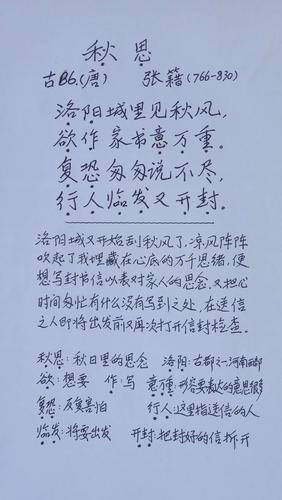 秋思
古B6.(唐) 张籍(766-830)
洛阳城里见秋风,
欲作家书意万重。
复恐匆匆说不尽,
行人临发又开封.
洛阳城又开始刮秋风了,凉风阵阵
吹起了我埋藏在心底的万千思绪,便
想写封书信以表对家人的思念,又担心
时间匆忙有什么没有写到之处,在送信
之人即将出发前又再次打开信封检查。
秋思:秋日里的思念 洛阳:古都之一河南西部
欲:想要 作:写 意万重:形容要表达的意思很多
复恐:反复害怕 行人:这里指送信的人
临发:将要出发 开封:把封好的信拆开